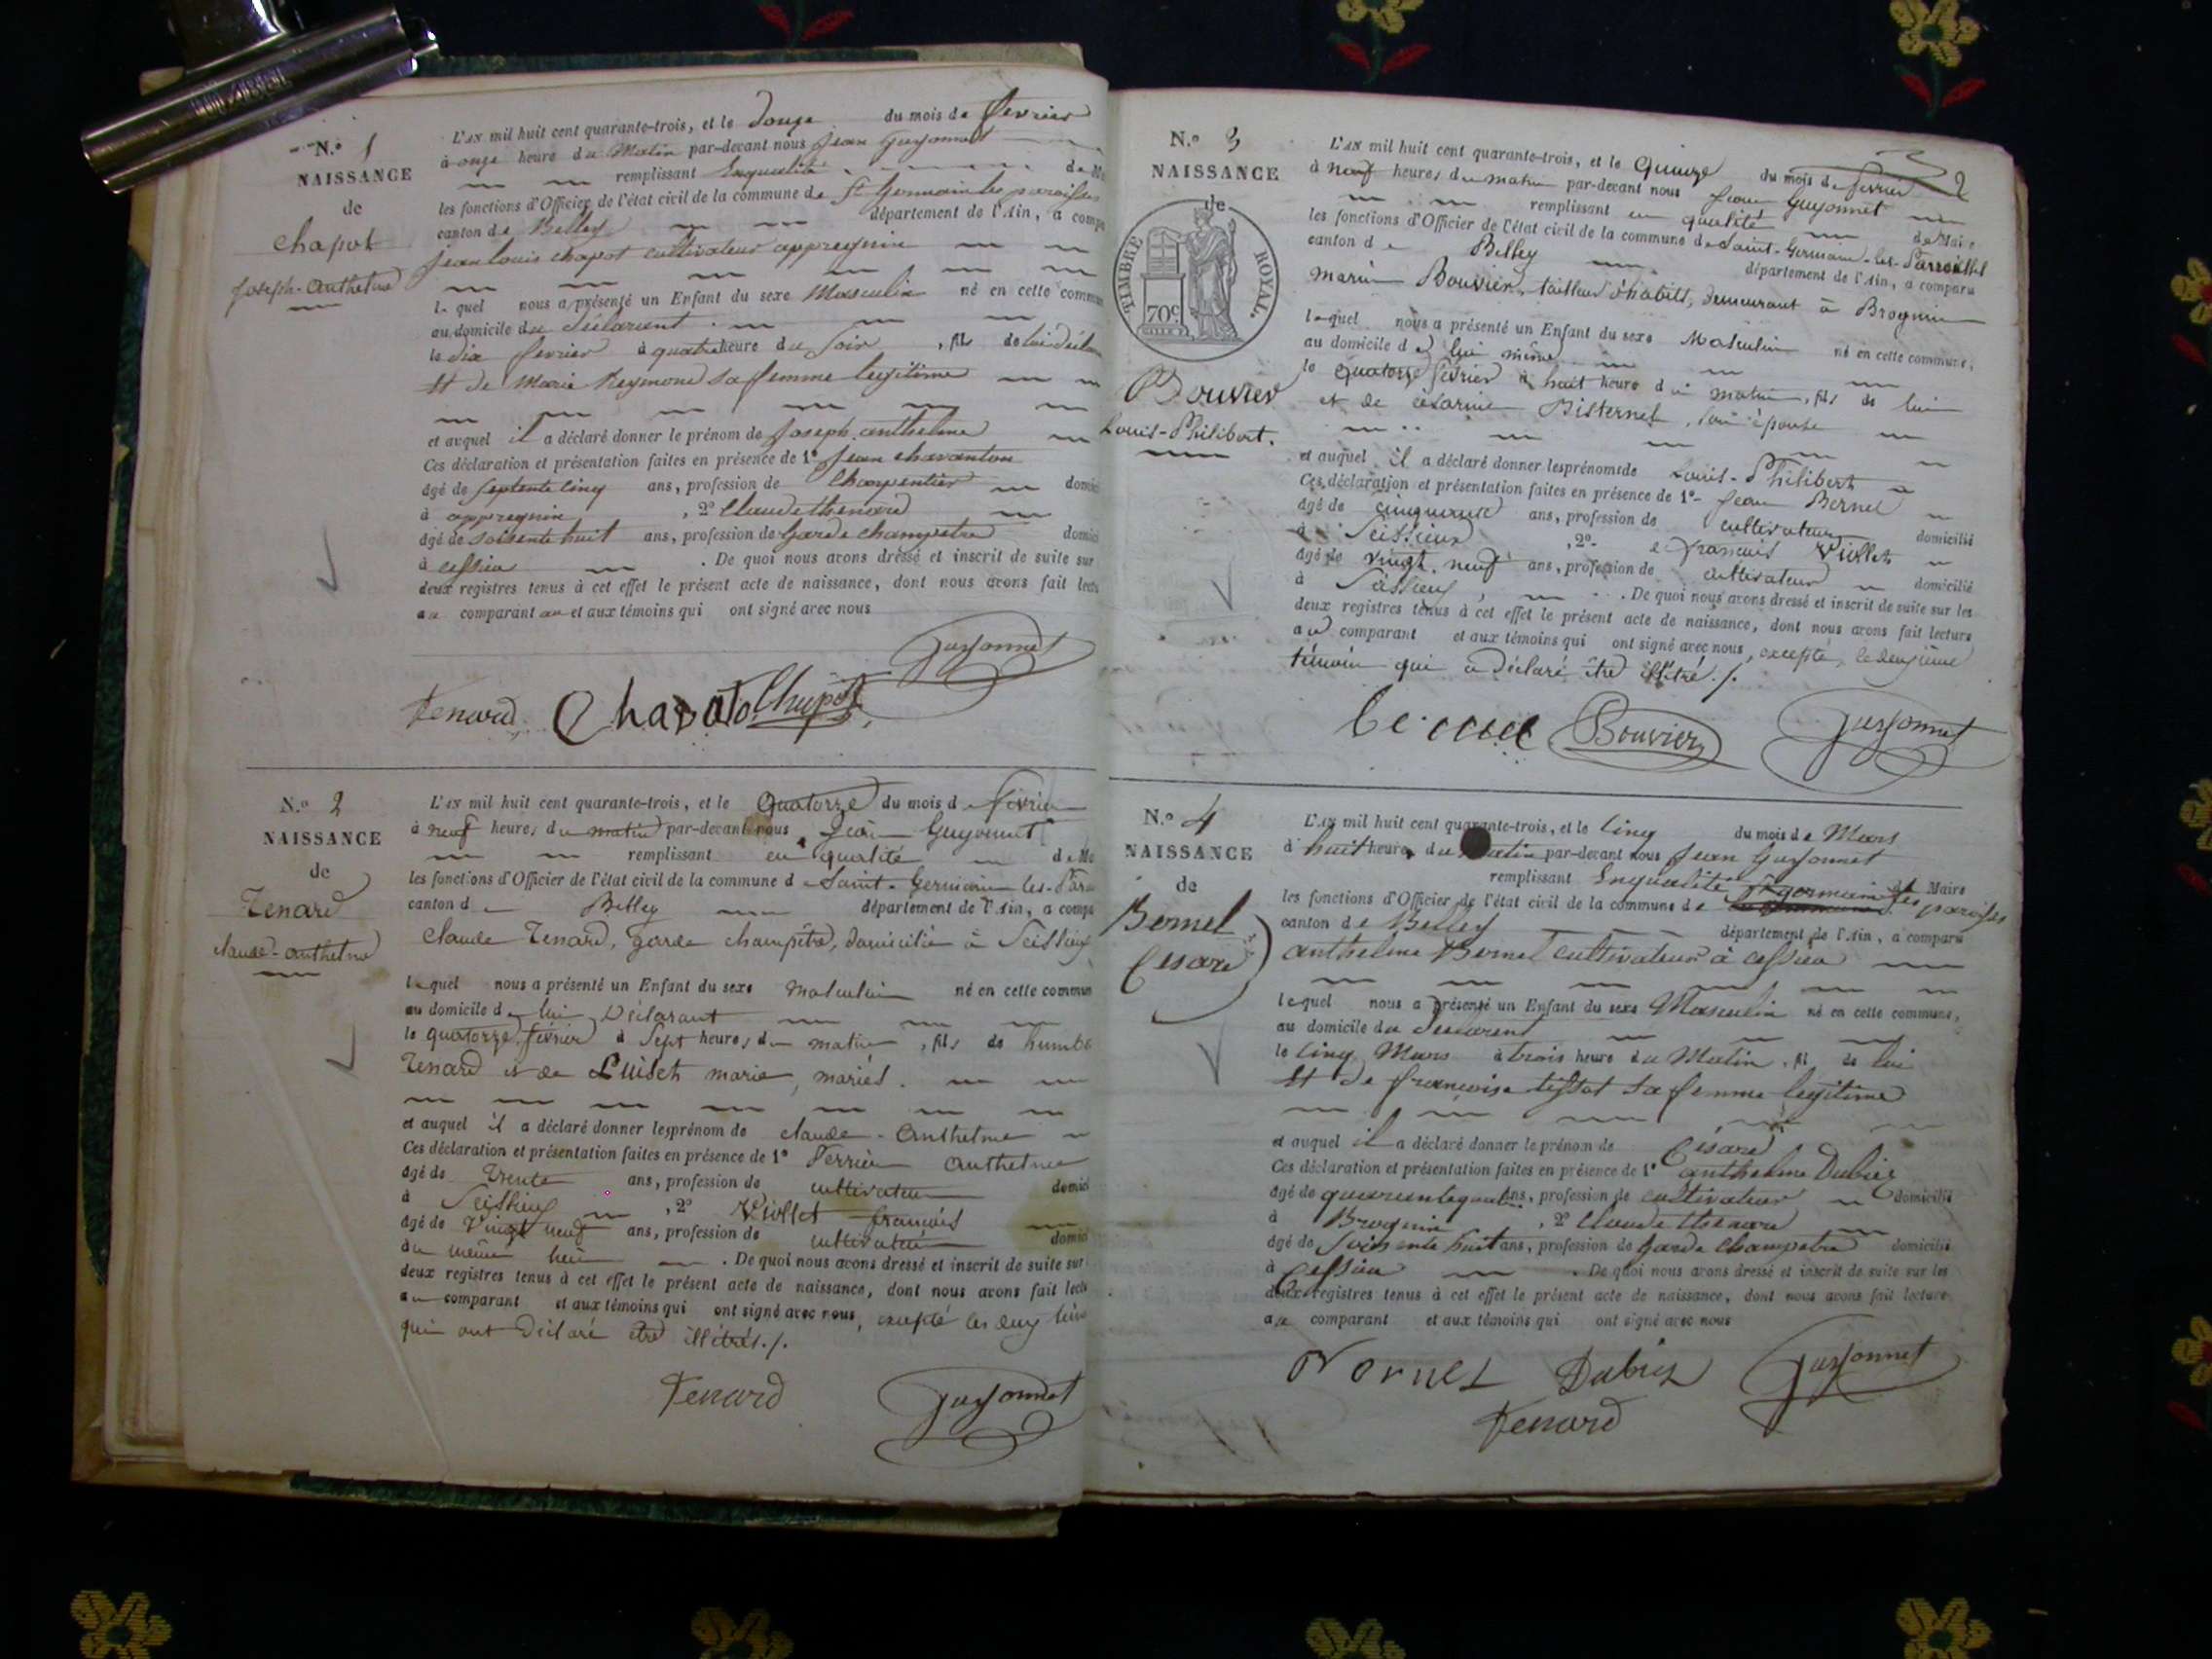 N.º 1
NAISSANCE
de
Chapot
Joseph-Anthelme
L'AN mil huit cent quarante-trois, et le Douze du mois de fevrier
à onze heure du Matin par-devant nous Jean Guyonnet
remplissant Enqualité de Ma
les fonctions d'Officier de l'état civil de la commune de St Germain les paroisses
canton de Belley département de l'Ain, a compa
Jean louis chapot cultivateur appregnin
lequel nous a présenté un Enfant du sexe Masculin né en cette commun
au domicile du Déclarant
le dix fevrier à quatre heure du Soir, fils de lui déclar
Et de Marie Reymond sa femme legitime
et auquel il a déclaré donner le prénom de Joseph anthelme
Ces déclaration et présentation faites en présence de 1º Jean chavanton
âgé de septente cinq ans, profession de Charpentier domici
à appregnin, 2º Claude thenard
âgé de soisente huit ans, profession de Garde champetre domici
à cessieu. De quoi nous avons dressé et inscrit de suite sur
deux registres tenus à cet effet le présent acte de naissance, dont nous avons fait lectu
au comparant et aux témoins qui ont signé avec nous
Guyonnet
Tenard Chapot
N.º 2
NAISSANCE
de
Tenard
claude-anthelme
L'AN mil huit cent quarante-trois, et le Quatorze du mois de février
à neuf heures du matin par-devant nous Jean Guyonnet
remplissant en qualité de Ma
les fonctions d'Officier de l'état civil de la commune de Saint-Germain-les-Par
canton de Belley département de l'Ain, a compa
Claude Tenard, garde champêtre, domicilié à Seissieu
lequel nous a présenté un Enfant du sexe masculin né en cette commun
au domicile de lui Déclarant
le quatorze février à Sept heures du matin, fils de humbe
Tenard et de Luiset marie, mariés.
et auquel il a déclaré donner les prénom de claude-Anthelme
Ces déclaration et présentation faites en présence de 1º Perrier Anthelme
âgé de trente ans, profession de cultivateur domici
à Seissieu, 2º Viollet françois
âgé de Vingt neuf ans, profession de cultivateur domici
du même lieu. De quoi nous avons dressé et inscrit de suite sur
deux registres tenus à cet effet le présent acte de naissance, dont nous avons fait lectu
au comparant et aux témoins qui ont signé avec nous, excepté les deux
qui ont Déclaré être illétrés./.
Tenard Guyonnet
N.º 3
NAISSANCE
de
TIMBRE ROYAL.
70c
Bouvier
Louis-Philibert.
2
L'AN mil huit cent quarante-trois, et le Quinze du mois de février
à neuf heures du matin par-devant nous Jean Guyonnet
remplissant en qualité de Maire
les fonctions d'Officier de l'état civil de la commune de Saint-Germain-les-Paroisses
canton de Belley département de l'Ain, a comparu
marin Bouvier, tailleur d'habits, demeurant à Brognin
lequel nous a présenté un Enfant du sexe Masculin né en cette commune,
au domicile de lui même
le quatorze février à huit heure du matin, fils de lui
et de césarine Bisternel, son épouse
et auquel il a déclaré donner les prénoms de Louis-Philibert
Ces déclaration et présentation faites en présence de 1º Jean Bernel
âgé de cinquante ans, profession de cultivateur domicilié
à Seissieux, 2º françois Viollet
âgé de vingt-neuf ans, profession de cultivateur domicilié
à Seissieu,. De quoi nous avons dressé et inscrit de suite sur les
deux registres tenus à cet effet le présent acte de naissance, dont nous avons fait lecture
au comparant et aux témoins qui ont signé avec nous, excepté, le deuxième
témoin qui a déclaré être illétré./.
Bouvier Guyonnet
N.º 4
NAISSANCE
de
Bernel
Cesare
L'AN mil huit cent quarante-trois, et le Cinq du mois de Mars
à huit heures du Matin par-devant nous Jean Guyonnet
remplissant Enqualité de Maire
les fonctions d'Officier de l'état civil de la commune de St germain les paroisses
canton de Belley département de l'Ain, a comparu
anthelme Bernel cultivateur à cessieu
lequel nous a présenté un Enfant du sexe Masculin né en cette commune,
au domicile du Declarent
le Cinq Mars à trois heure du Matin, fil de lui
Et de françoise tissot sa femme legitime
et auquel il a déclaré donner le prénom de Césaré
Ces déclaration et présentation faites en présence de 1º anthelme Dubiez
âgé de quarente quatre ans, profession de cultivateur domicilié
à Brognin, 2º Claude thenard
âgé de Soisente huit ans, profession de garde Champetre domicilié
à Cessieu. De quoi nous avons dressé et inscrit de suite sur les
deux registres tenus à cet effet le présent acte de naissance, dont nous avons fait lecture
au comparant et aux témoins qui ont signé avec nous
Dubiez Guyonnet
Tenard